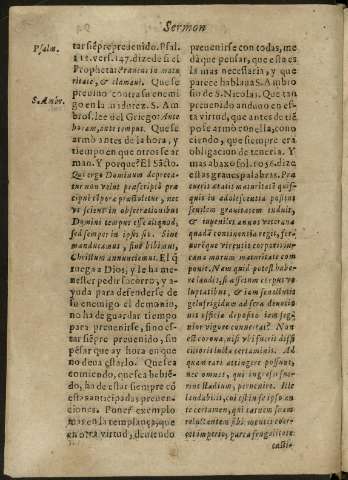 Sermon
Psalm.
S. Ambr.
tar siẽpre preuenido. Psal.
118. vers. 147. dize de si el
Propheta: Praeueni in matu
ritate, & clamaui. Que se
preuino contra su enemi
go en la madurez. S. Am
bros. lee del Griego: Ante
horam, ante tempus. Que se
armò antes de la hora, y
tiempo en que otros se ar
man. Y porque? El Sãcto.
Qui ergo Dominum depreca-
tur non velut praescripto prae
cipui tẽpora praestoletur, nec
vt sciens in obseruationibus
Domini tempus esse aliquod,
sed semper in ipsis sit. Siue
manducamus, siue bibimus,
Christum annunciemus. El q̃
ruega a Dios, y le ha me-
nester pedir socorro, y a-
yuda para defenderse de
su enemigo el demonio,
no ha de guardar tiempo
para preuenirse, sino es-
tar siẽpre preuenido, sin
pẽsar que ay hora en que
no deua estarlo. Que sea
comiendo, que sea bebiẽ-
do, ha de estar siempre cõ
estas anticipadas preuen-
ciones. Poner exemplo
mas en la templança, que
en otra virtud, deuiendo
preuenirse con todas, me
dà que pensar, que esta es
la mas necessaria, y que
parece hablaua S. Ambro
sio de S. Nicolas. Que tan
preuenido anduuo en es-
ta virtud, que antes de tiẽ
po se armò con ella, cono
ciendo, que siempre era
obligacion de tenerla. Y
mas abaxo fol. 1056. dize
estas graues palabras. Prae
cucris aetatis maturitatẽ quis-
quis in adolescentia positus
senilem grauitatem induit,
& iuueniles annos veterana
quadã continentia regit, fer-
uorẽque virentis corporis in-
cana morum maturitate com
ponit. Nam quid potest habe-
re laudis, si affectum corpus vo
luptatibus, & iam senilibus
gelu frigidum ad sera deuotio
nis officia deposito iam seg-
nior vigore conuertat? Non
est corona, nisi vbi fuerit diffi
cilioris luctae certaminis. Ad
quam aetas attingere possunt,
nec omnes, qui ingressi fue-
rint stadium, peruenire. Ille
laudabilis, cui est in se ipso an
te certamen, qui carnem suam
reluctantem sibi mentis coer-
cet imperio, parca frugalitate
casti-